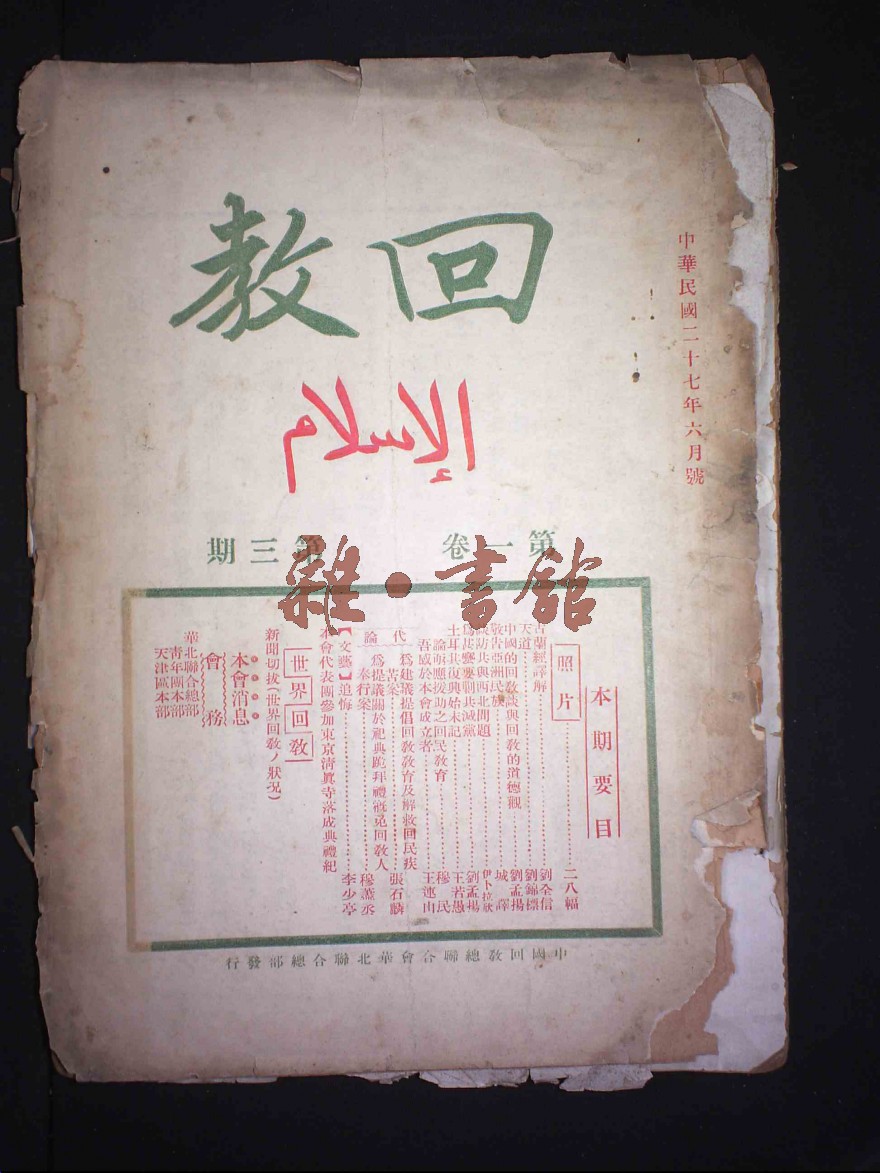 中華民國二十七年六月號
回教
الإسلام
第一卷 第三期
雜·書館
本期要目
照片 二八幅
古蘭經譯解 劉全信
天道 劉錦標
中國的回教談與回教的道德觀 劉孟揚
敬告亞洲民族 城譯
談防共與西北問題 伊卜拉欣
爲甚麼要剿共滅黨 劉孟揚
土耳其復興始末記 王若愚
論亟應援助之回民教育 穆民
吾感於本會成立者 王連山
代論
爲建議提倡回教教育及解救回民疾苦案 張石麟
爲提議關於祀典跪拜禮槪免回教人奉行案 穆藎丞
【文藝】追悔 李少亭
本會代表團參加東京清眞寺落成典禮紀
世界回教
新聞切拔(世界回教ノ狀況)
本會消息
會務
華北聯合總部
青年團本部
天津區本部
中國回教總聯合會華北聯合總部發行